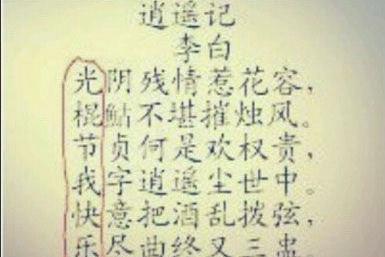 逍遥记
李白
光阴残情惹花容，
棍鲇不堪摧烛风。
节贞何是欢权贵，
我字逍遥尘世中。
快意把酒乱拨弦，
乐尽曲终又三盅